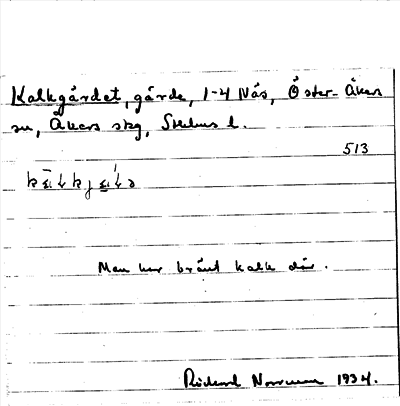 Kalkgärdet, gärde, 1-4 Näs, Öster-Åkers
sn, Åkers skg, Sthlms l.
513
Man har bränt kalk där.
Rickard Norrman 1934.